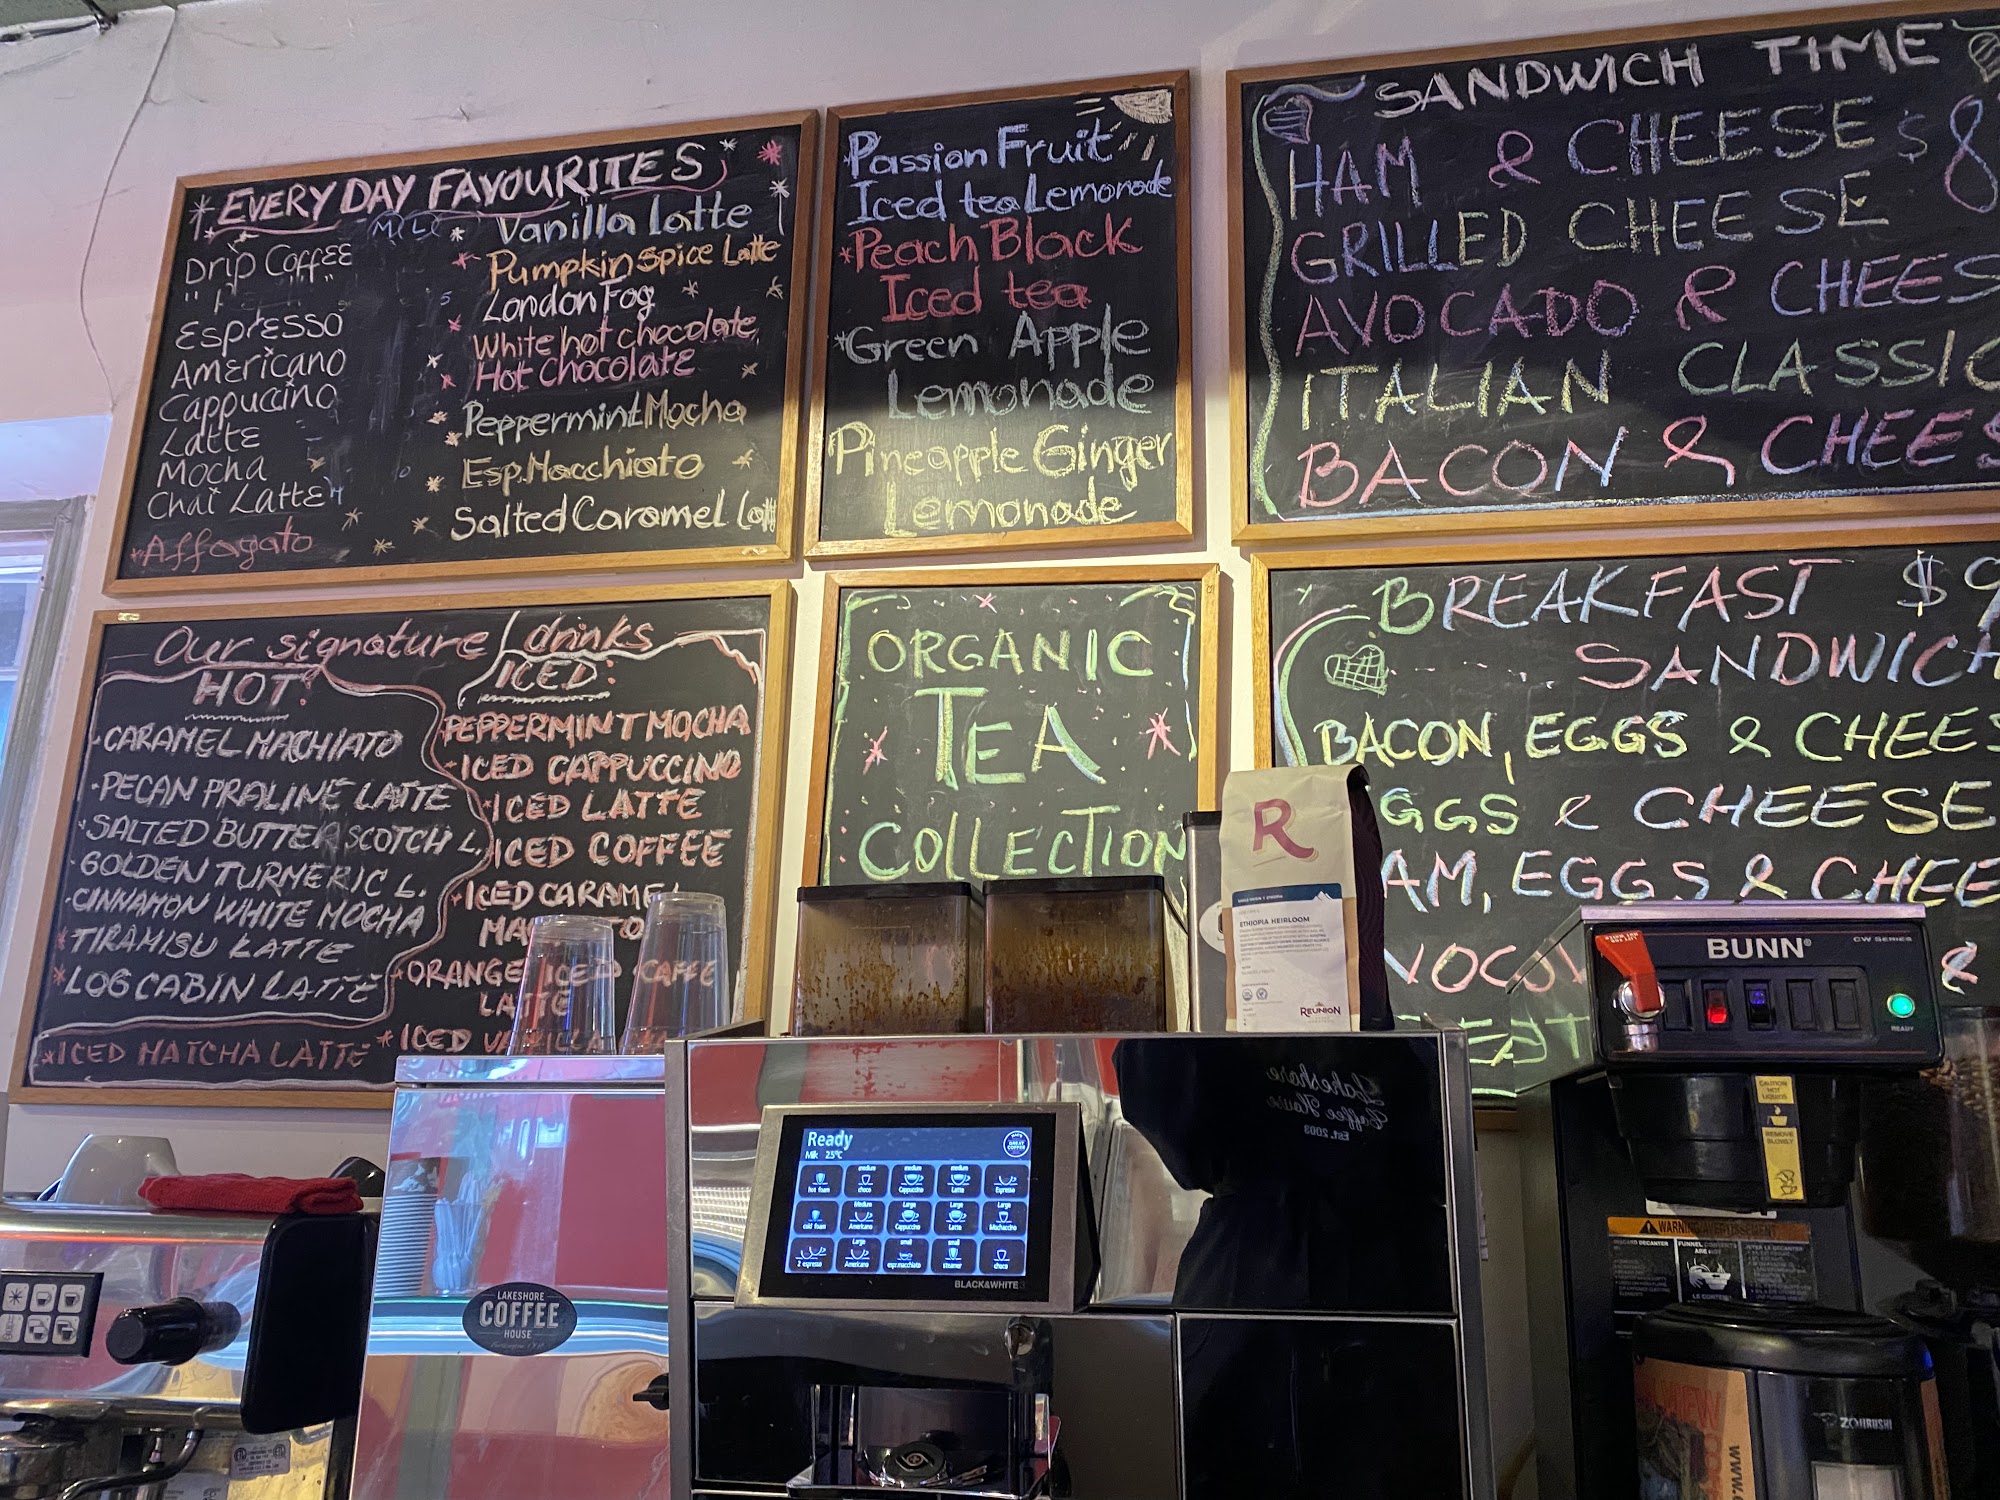 EVERY DAY FAVOURITES
Drip Coffee
Espresso
Americano
Cappuccino
Latte
Mocha
Chai Latte
Affogato
Vanilla latte
Pumpkin Spice Latte
London Fog
White hot chocolate
Hot Chocolate
Peppermint Mocha
Esp. Macchiato
Salted Caramel
Passion Fruit
Iced tea Lemonade
Peach Black
Iced tea
Green Apple
Lemonade
Pineapple Ginger
Lemonade
SANDWICH TIME
HAM & CHEESE $8
GRILLED CHEESE
AVOCADO & CHEES
ITALIAN CLASSIC
BACON & CHEES
Our signature drinks
HOT:
CARAMEL MACHIATO
PECAN PRALINE LATTE
SALTED BUTTERSCOTCH L.
GOLDEN TURMERIC L.
CINNAMON WHITE MOCHA
TIRAMISU LATTE
LOG CABIN LATTE
ICED MATCHA LATTE
ICED:
PEPPERMINT MOCHA
ICED CAPPUCCINO
ICED LATTE
ICED COFFEE
ICED CARAMEL
ORANGE ICED CAFFE
LATTE
ICED VANILLA
ORGANIC
TEA
COLLECTION
BREAKFAST $9
SANDWICH
BACON, EGGS & CHEES
GGS & CHEESE
AM, EGGS & CHEE
&
R
ETHIOPIA HEIRLOOM
REUNION
BUNN®
CW SERIES
READY
CAUTION
HOT
LIQUIDS
REMOVE
SLOWLY
WARNING
FUNNEL CONTENTS
ARE HOT
ZOJIRUSHI
Lakeshore
Coffee House
Est. 2003
Ready
Milk 25°C
medium medium medium
hot foam choco Cappuccino Latte Espresso
Medium Large Large Large
cold foam Americano Cappuccino Latte Mochaccino
Large small small
2 espresso Americano espr.macchiato steamer choco
BLACK&WHITE3
LAKESHORE
COFFEE
HOUSE